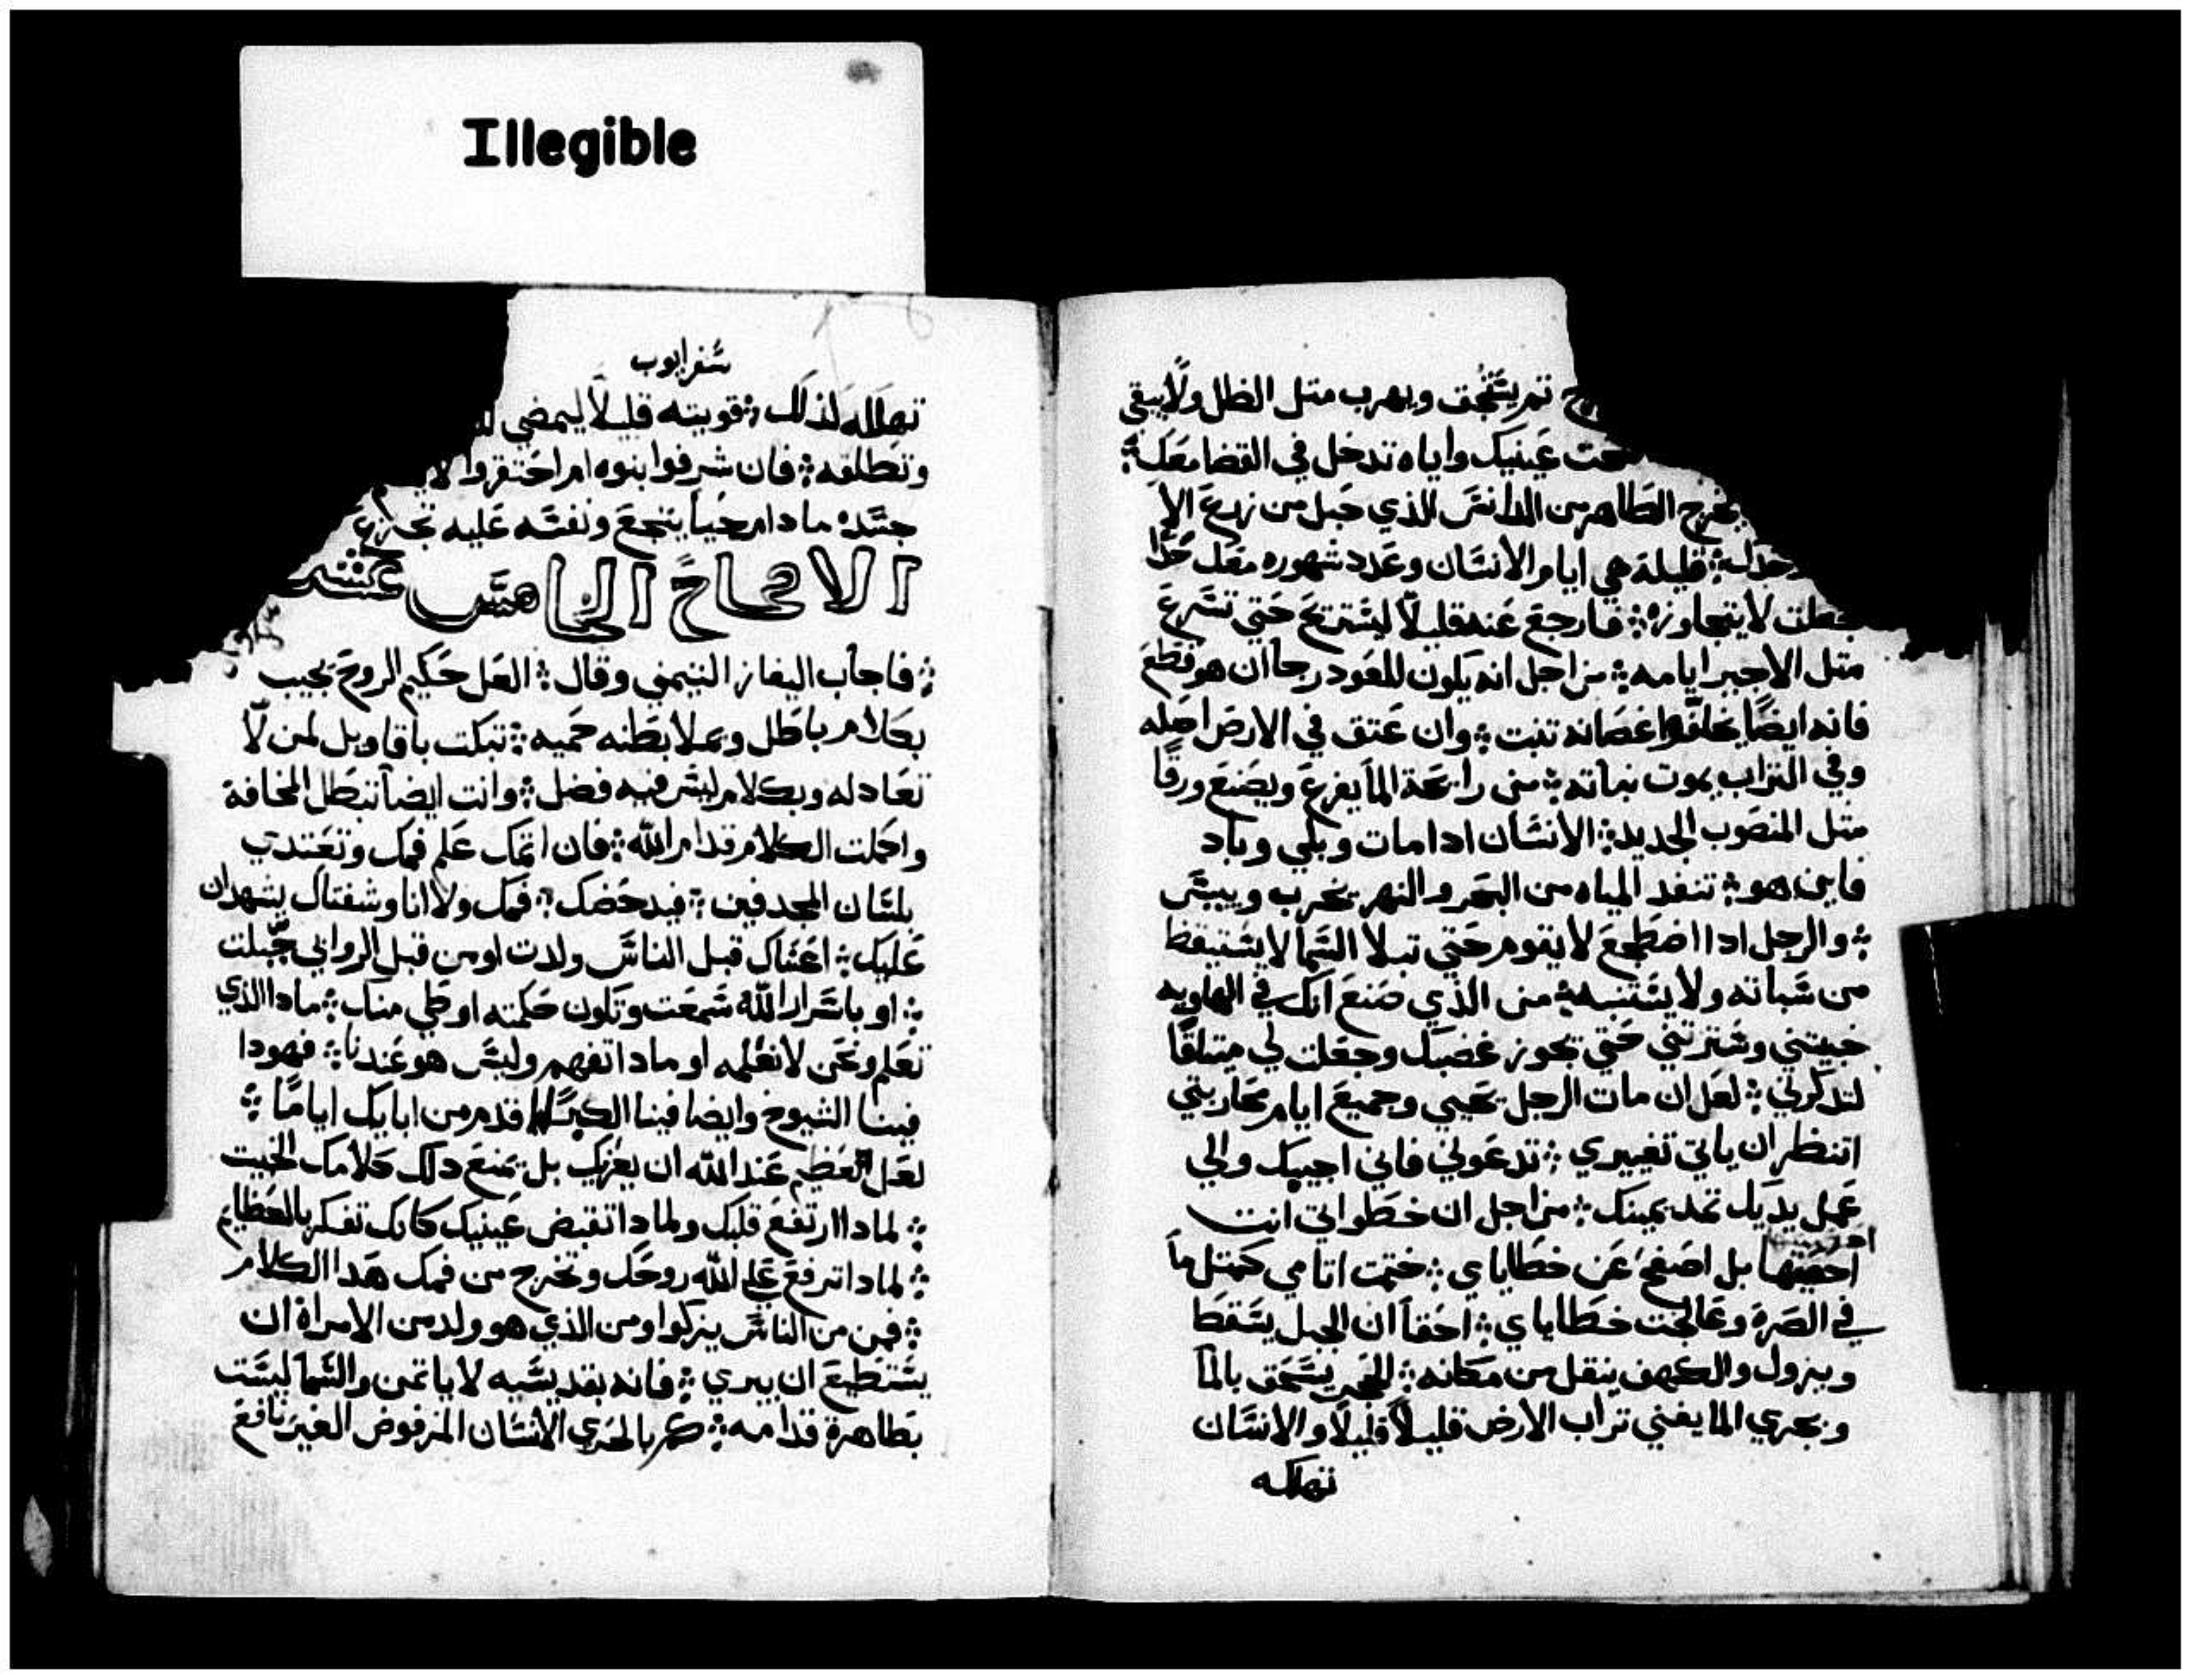 Illegible
ثم ينسحق ويهرب مثل الظل ولا يبقي
عينيك واياه تدخل في القضا معك
يخرج الطاهر من الدانس الذي حبل من زرع الا
قليلة هي ايام الانسان وعدد شهوره معك حدا
جعلت لا يتجاوزه فارجع عنه قليلاً ليستريح حتي تسرع
متل الاجير ايامه من اجل انه يكون للعود رجا ان هو قطع
فانه ايضًا يخلف واغصانه تنبت وان عتق في الارض اصله
وفي التراب يموت نباته من رايحة الما يفرع ويصنع ورقًا
متل المنصوب الجديد الانسان ادا مات وبلي وباد
فاين هو تنفد المياه من البحر والنهر يخرب وييبس
والرجل ادا اضطجع لا يقوم حتي تبلا السما لا يستيقظ
من سباته ولا يستنبه من الذي صنع انك في الهاويه
خبيتني وسترتني حتي يجوز غضبك وجعلت لي ميتاقًا
لتدكرني لعل ان مات الرجل يحيي وجميع ايام محاربتي
انتظر ان ياتي تغييري تدعوني فاني اجيبك والي
عمل يديك تمد يمينك من اجل ان خطواتي انت
احصيتها بل اصفح عن خطاياي ختمت اتامي كمتل ما
في الصرة وعالجت خطاياي احقاً ان الجبل يسقط
ويزول والكهف ينقل من مكانه الحجر يسحق بالما
وبجري الما يفني تراب الارض قليلاً قليلاً والانسان
تهلكه
سفر ايوب
تهلكه لذلك قويته قليلاً ليمضي
وتطلقه فان شرفوا بنوه ام احتقروا
جسده ما دام حياً يتجع ونفسه عليه تجزع
الاصحاح الخامس عشر
فاجاب اليفاز التيمني وقال العل حكيم الروح يجيب
بكلام باطل ويملا بطنه حميه تبكت باقاويل لمن لا
تعادله وبكلام ليس فيه فضل وانت ايضاً تبطل المخافة
واكملت الكلام قدام الله فان اتمك علم فمك وتقتدي
بلسان المجدفين فيدحضك فمك ولا انا وشفتاك يشهدان
عليك اعساك قبل الناس ولدت او من قبل الروابي جبلت
او باسرار الله سمعت وتكون حكمته اوطي منك ما دا الذي
تعلم ونحن لا نعلمه او ما دا تفهم وليس هو عندنا فهودا
فينا الشيوخ وايضا فينا الكبرا اقدم من ابايك ايامًا
لعل العظيم عند الله ان يعزيك بل يمنع دلك كلامك الخبيت
لمادا ارتفع قلبك ولمادا تقبض عينيك كانك تفكر بالعظايم
لمادا ترفع علي الله روحك وتخرج من فمك هدا الكلام
فمن من الناس يزكوا ومن الذي هو ولد من الامراة ان
يستطيع ان يبري فانه بقديسيه لا ياتمن والسما ليست
بطاهرة قدامه كم بالحري الانسان المرفوض الغير نافع